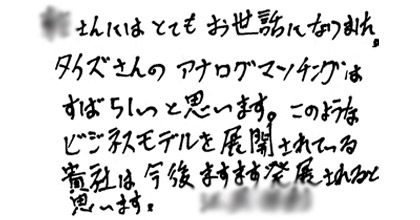 さんにはとてもお世話になりました。
タイズさんのアナログマンチングは
すばらしいっと思います。このような
ビジネスモデルを展開されている
貴社は今後ますます発展されると
思います。